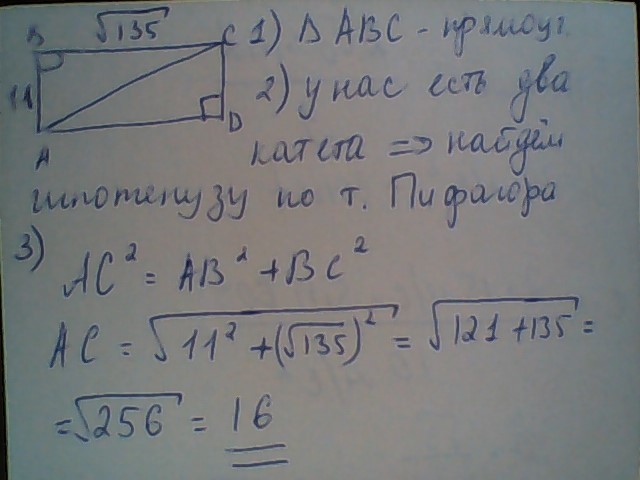 √135
B
C
11
A
D
1) Δ ABC - прямоуг.
2) у нас есть два
катета => найдём
гипотенузу по т. Пифагора
3)
AC² = AB² + BC²
AC = √11² + (√135)² = √121 + 135 =
= √256 = 16